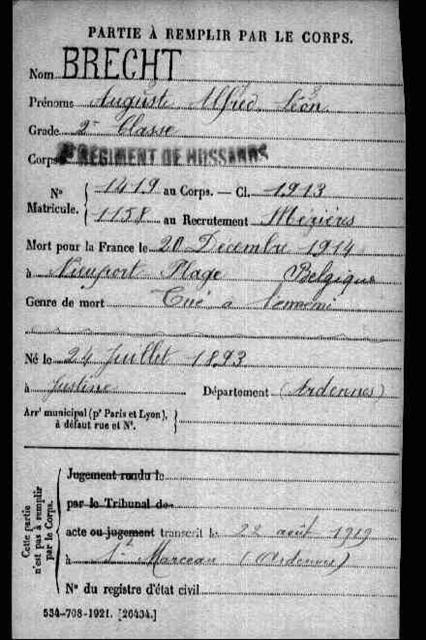 PARTIE À REMPLIR PAR LE CORPS.
Nom BRECHT
Prénoms Auguste Alfred Léon
Grade 2e Classe
Corps RÉGIMENT DE HUSSARDS
No 1419 au Corps. — Cl. 1913
Matricule. 1158 au Recrutement Mézières
Mort pour la France le 20 Décembre 1914
à Nieuport Plage Belgique
Genre de mort Tué a l'ennemi
Né le 24 Juillet 1893
à Justine Département (Ardennes)
Arrt municipal (pr Paris et Lyon),
à défaut rue et No.
Cette partie
n'est pas à remplir
par le Corps.
Jugement rendu le
par le Tribunal de
acte ou jugement transcrit le 22 août 1919
à St Marceau (Ardennes)
No du registre d'état civil
534-708-1921. [26434.]